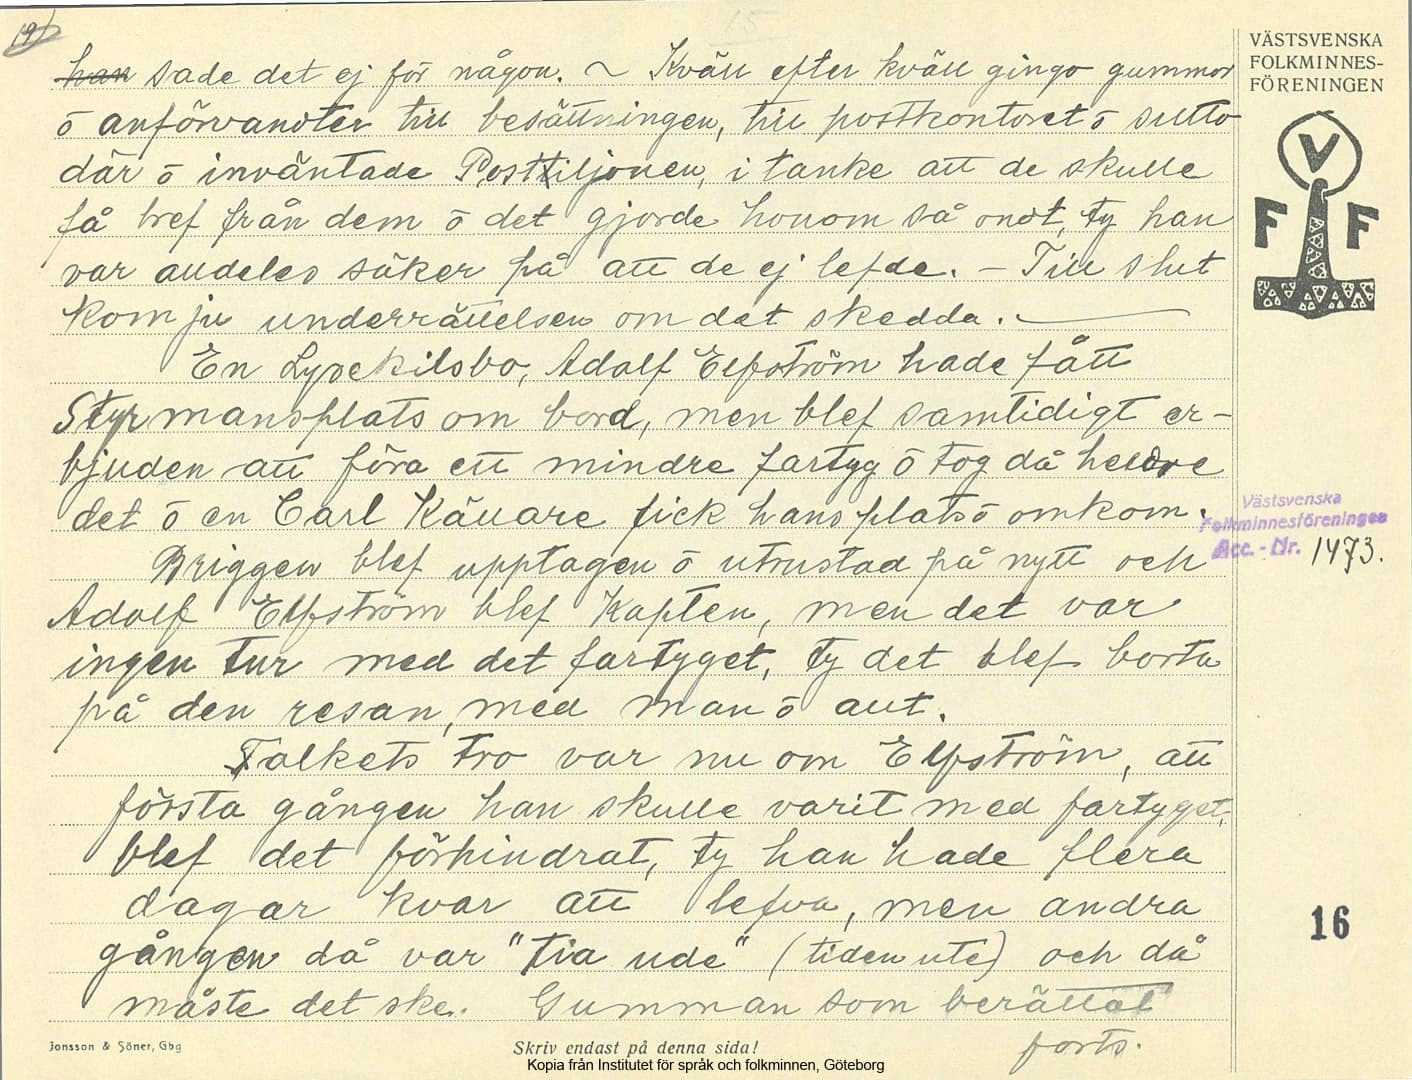 19)
15
VÄSTSVENSKA
FOLKMINNES-
FÖRENINGEN
V
F F
han sade det ej för någon. ~ Kväll efter kväll gingo gummor
ō anförvandter till besättningen, till postkontoret ō sutto
där ō inväntade Posttiljonen, i tanke att de skulle
få bref från dem ō det gjorde honom så ondt, ty han
var alldeles säker på att de ej lefde. – Till slut
kom ju underrättelsen om det skedda. —
En Lysekilsbo, Adolf Elfström hade fått
Styrmansplats om bord, men blef samtidigt er-
bjuden att föra ett mindre fartyg ō tog då heldre
det ō en Carl Källare fick hans plats ō omkom.
Briggen blef upptagen ō utrustad på nytt och
Adolf Elfström blef Kapten, men det var
ingen tur med det fartyget, ty det blef borta
på den resan, med man ō allt.
Falkets tro var nu om Elfström, att
första gången han skulle varit med fartyget,
blef det förhindrat, ty han hade flera
dagar kvar att lefva, men andra
gången då var "tia ude" (tiden ute) och då
måste det ske. Gumman som berättat
forts.
Västsvenska
Folkminnesföreningen
Acc. - Nr. 1473.
16
Jonsson & Söner, Gbg
Skriv endast på denna sida!
Kopia från Institutet för språk och folkminnen, Göteborg